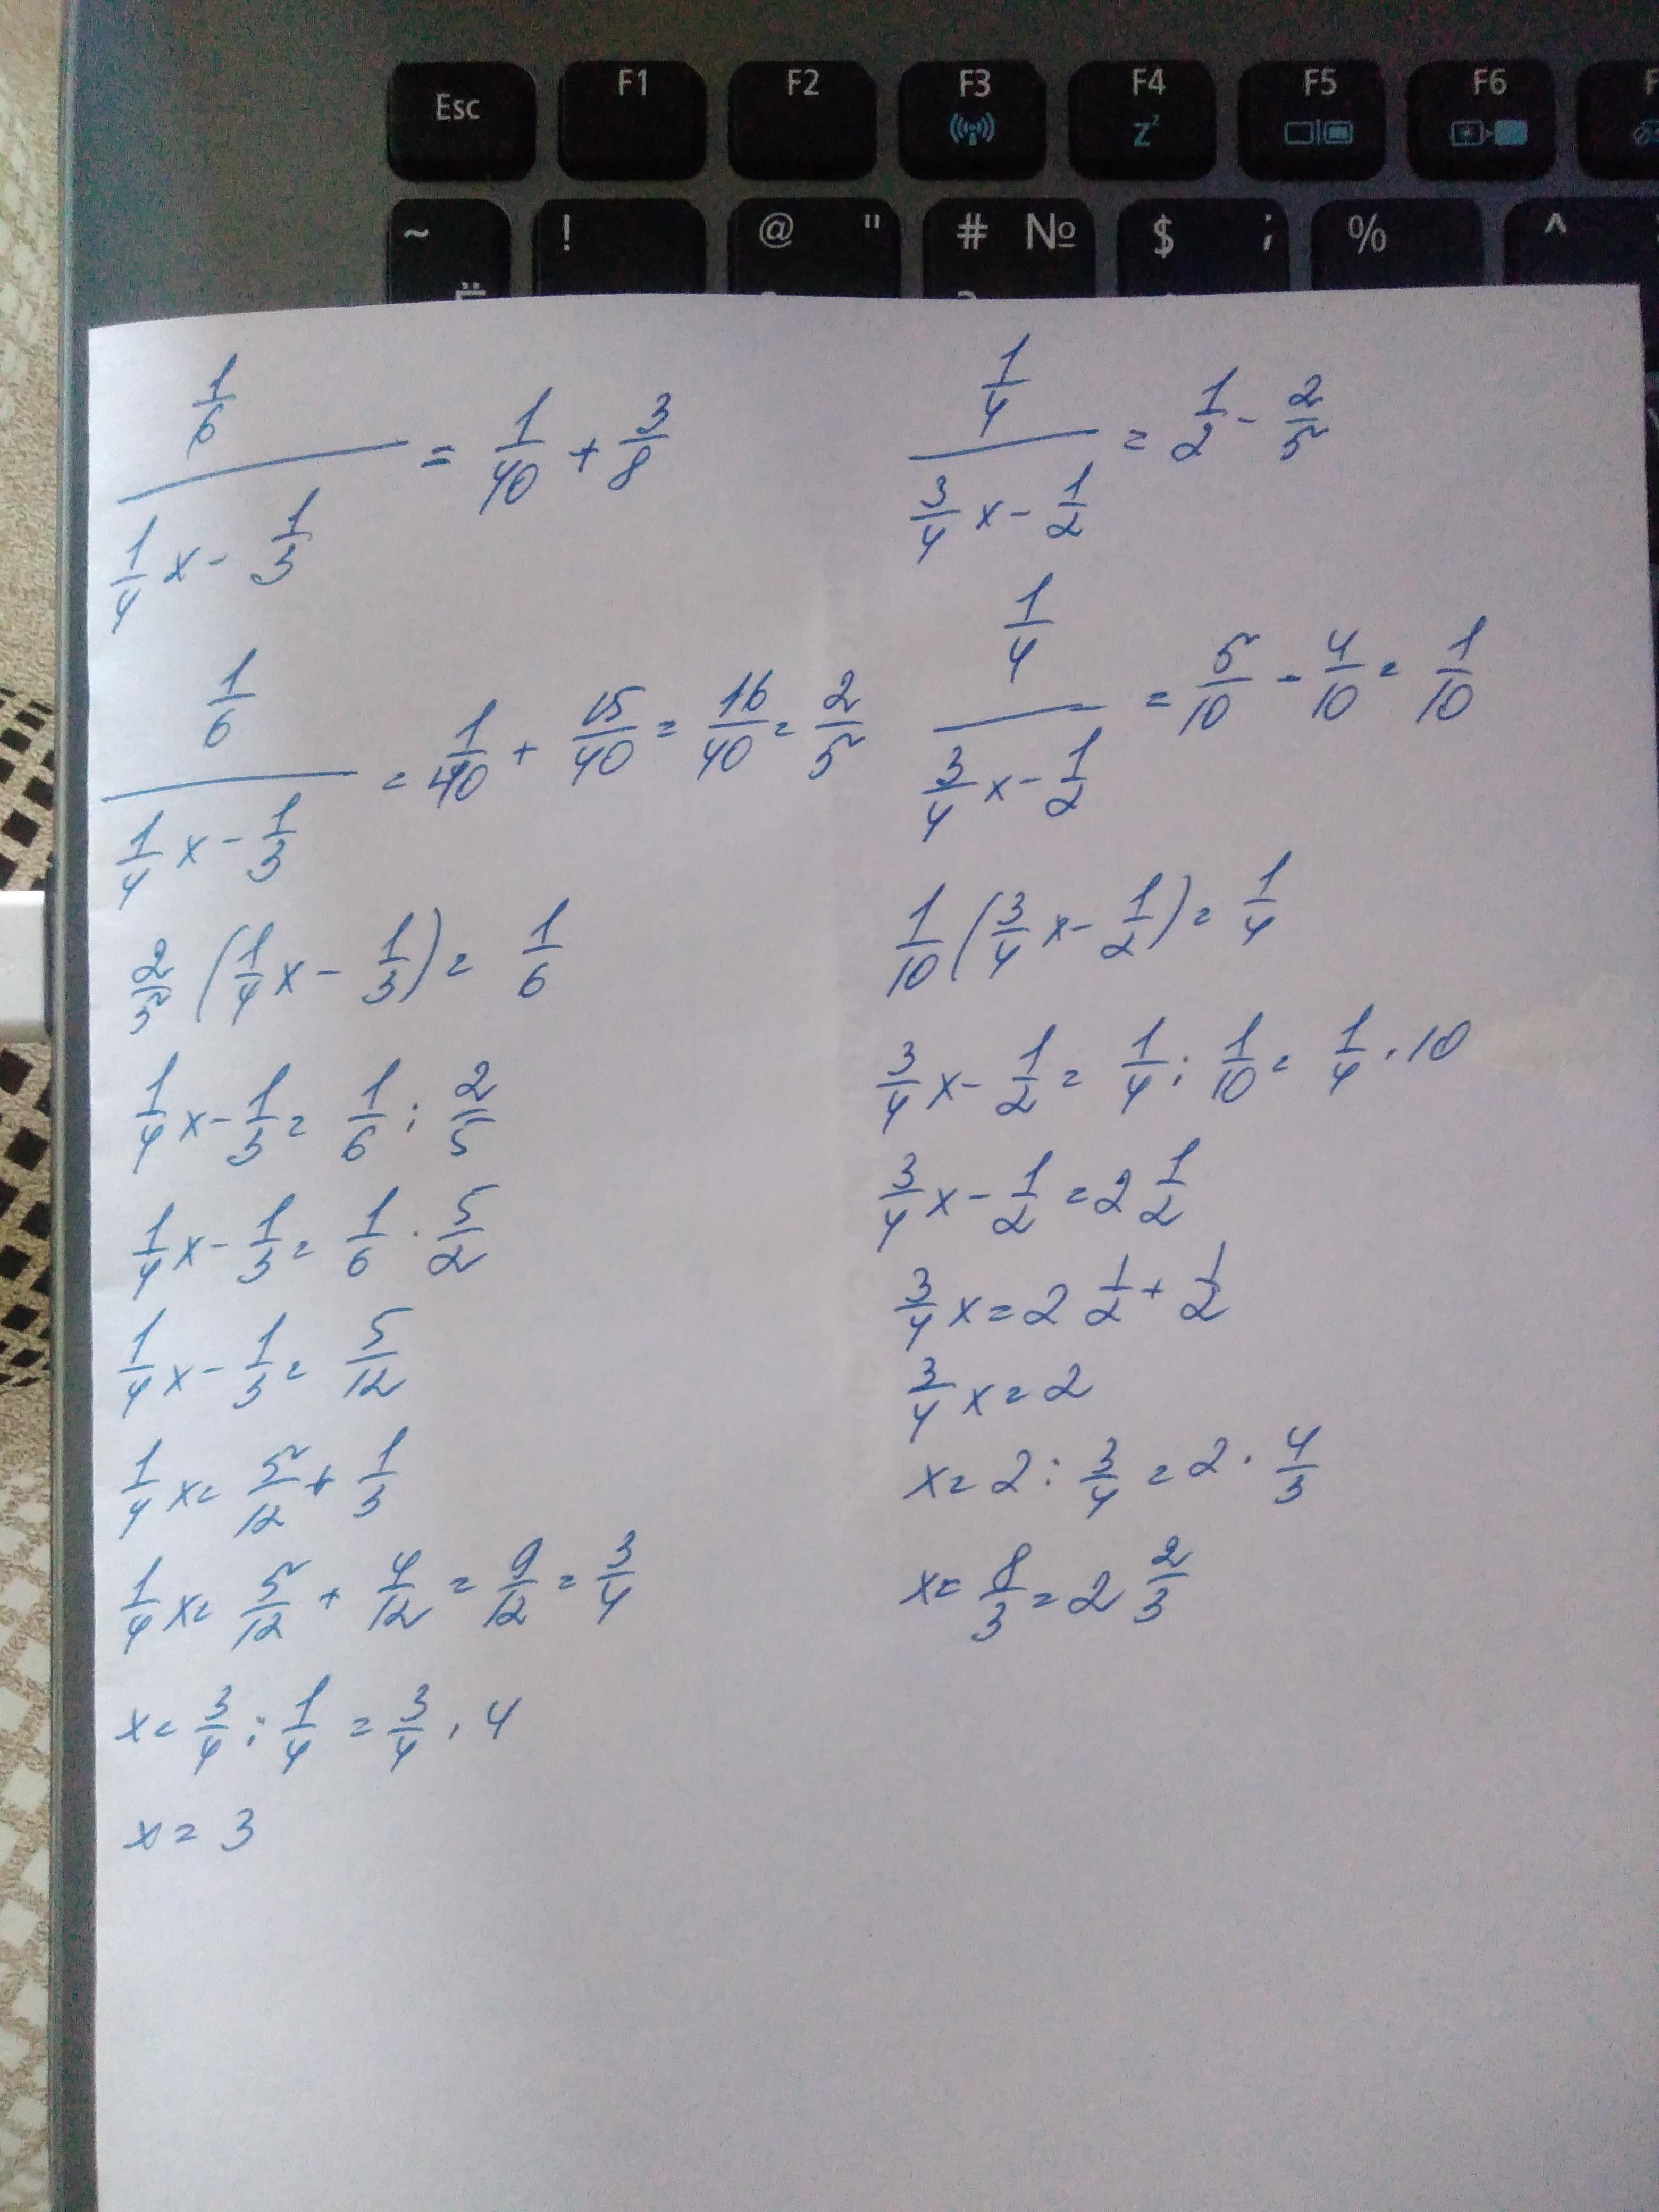 Esc F1 F2 F3 F4 F5 F6
~ ! @ " # № $ ; % ^
(1/6)/(1/4 x - 1/3) = 1/40 + 3/8
(1/6)/(1/4 x - 1/3) = 1/40 + 15/40 = 16/40 = 2/5
2/5 (1/4 x - 1/3) = 1/6
1/4 x - 1/3 = 1/6 : 2/5
1/4 x - 1/3 = 1/6 · 5/2
1/4 x - 1/3 = 5/12
1/4 x = 5/12 + 1/3
1/4 x = 5/12 + 4/12 = 9/12 = 3/4
x = 3/4 : 1/4 = 3/4 · 4
x = 3
(1/4)/(3/4 x - 1/2) = 1/2 - 2/5
(1/4)/(3/4 x - 1/2) = 5/10 - 4/10 = 1/10
1/10 (3/4 x - 1/2) = 1/4
3/4 x - 1/2 = 1/4 : 1/10 = 1/4 · 10
3/4 x - 1/2 = 2 1/2
3/4 x = 2 1/2 + 1/2
3/4 x = 2
x = 2 : 3/4 = 2 · 4/3
x = 8/3 = 2 2/3